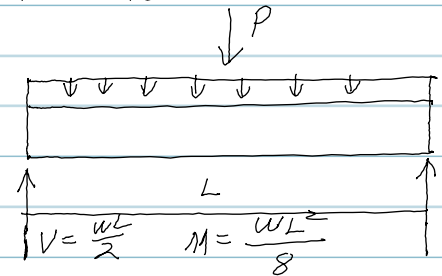 P
L
V = wL/2 M = WL²/8